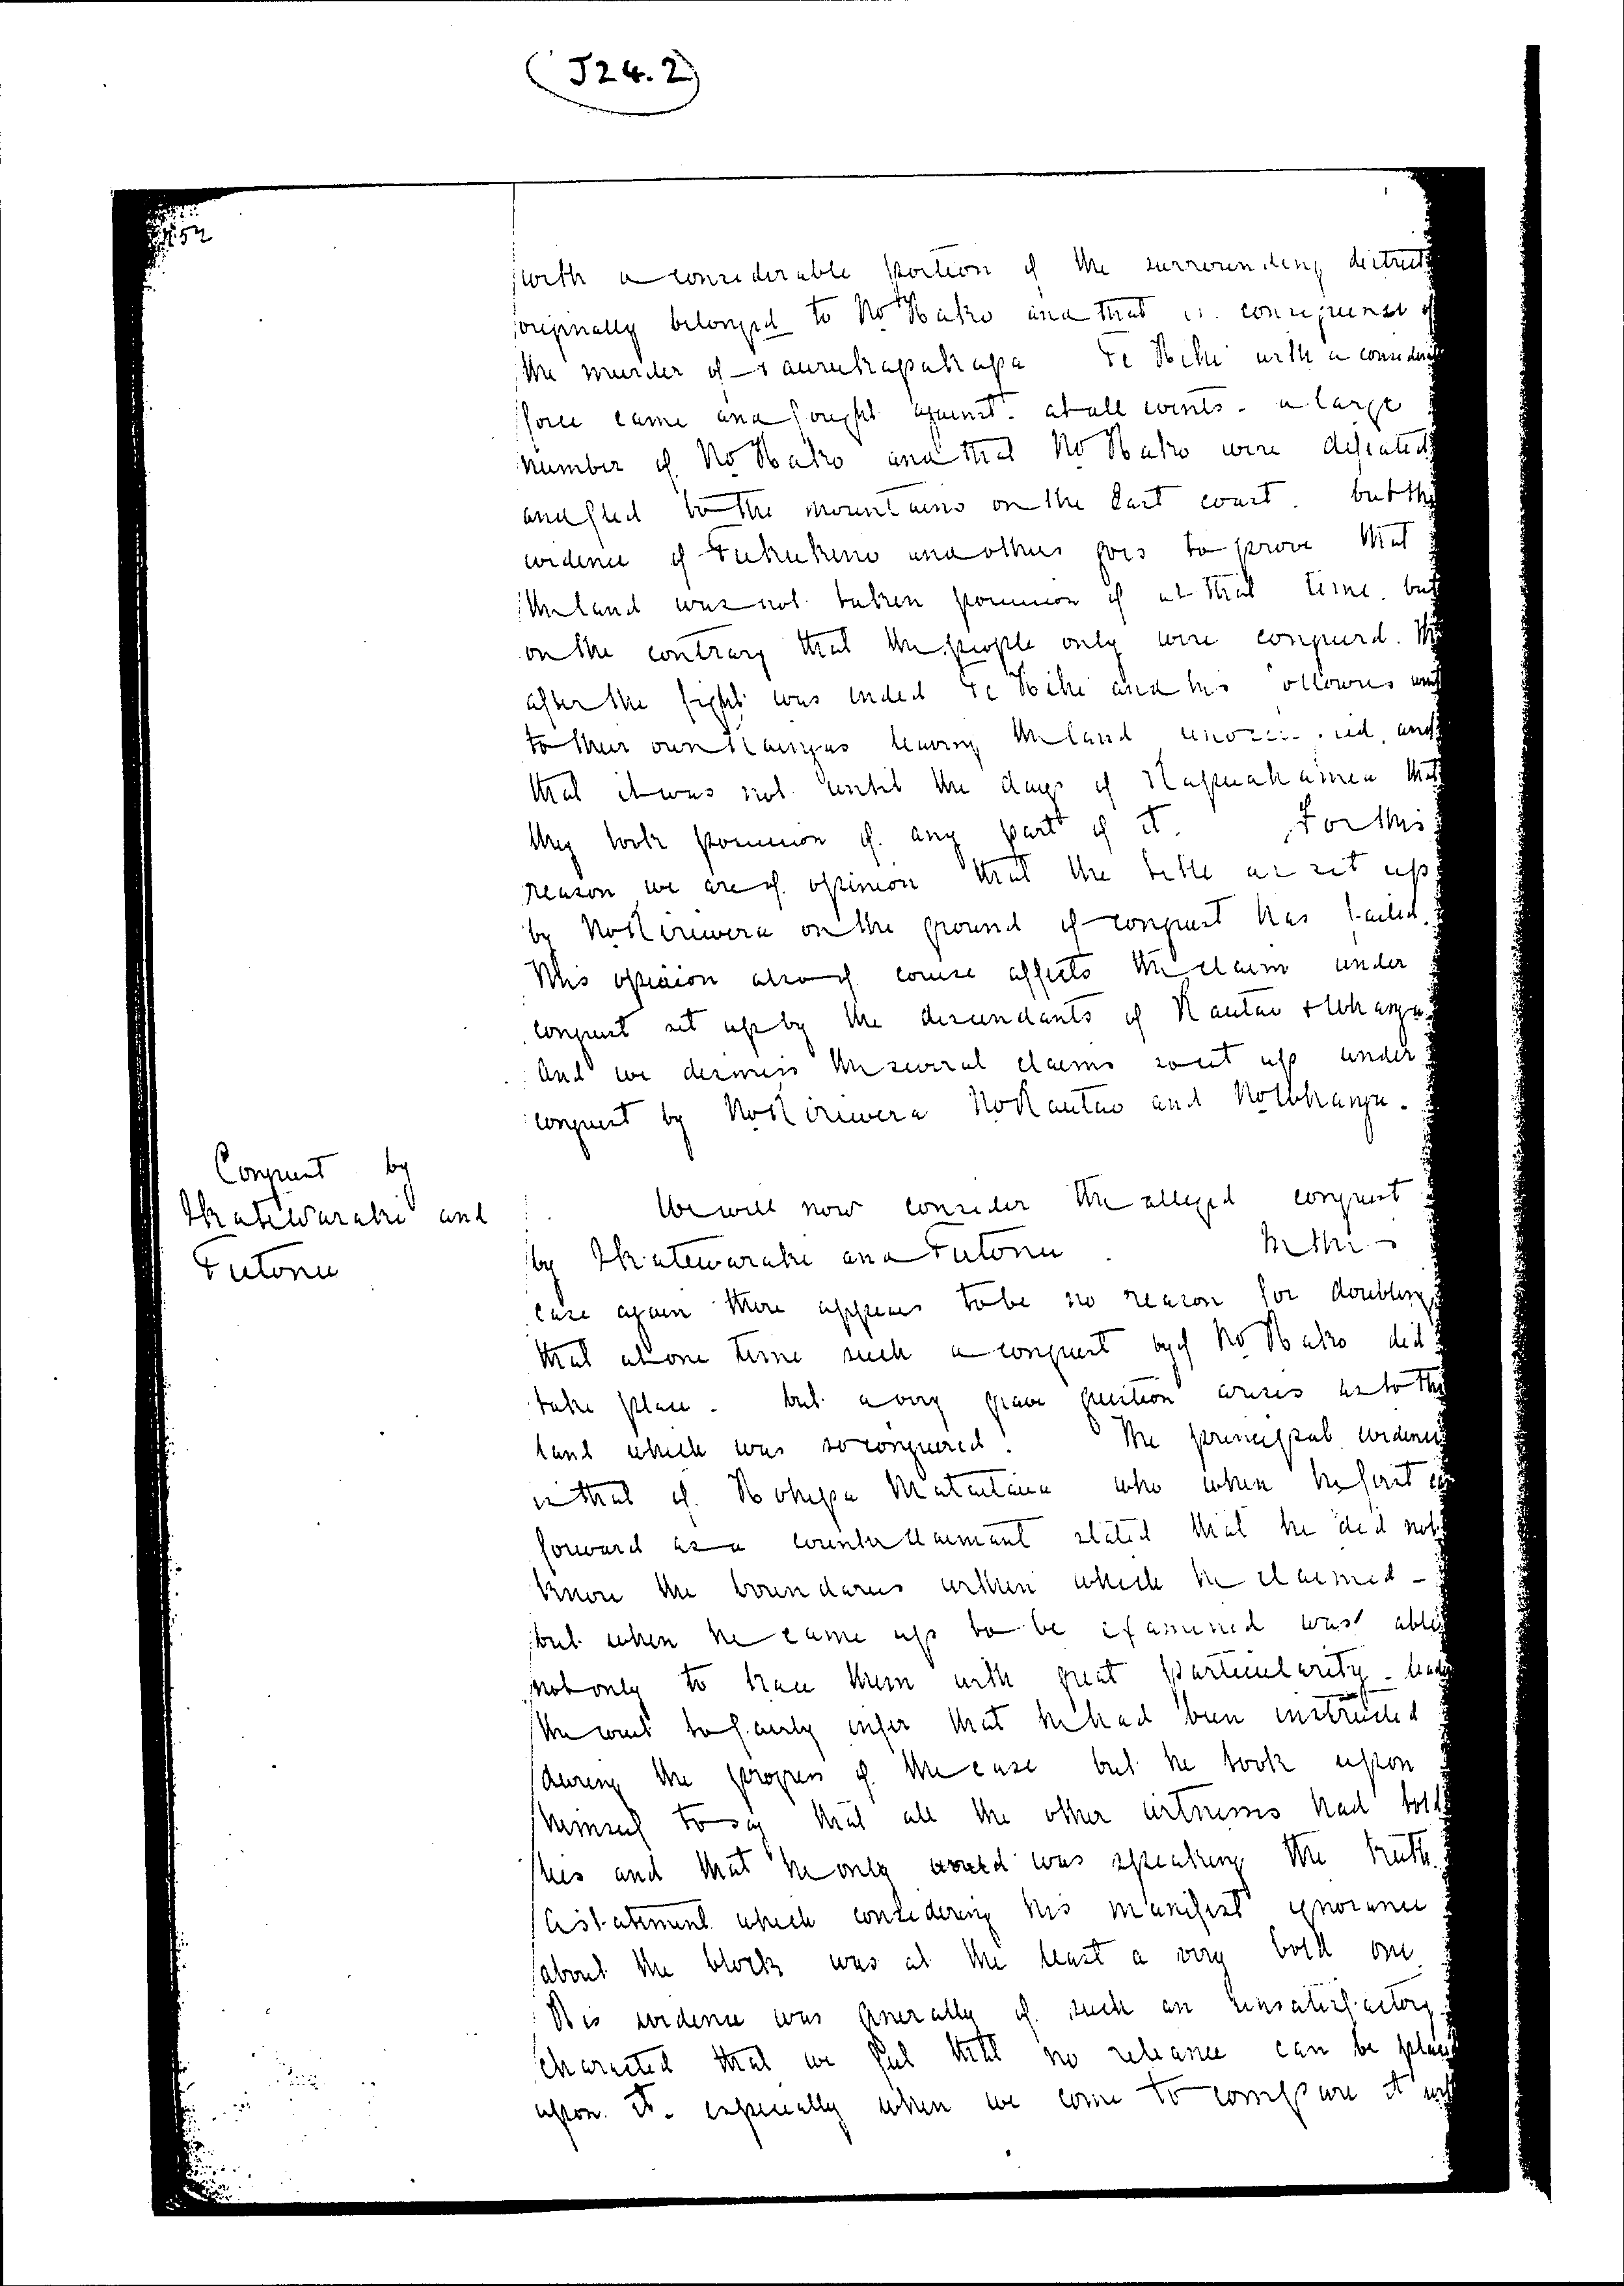 (J24.2)
152
with a considerable portion of the surrounding district
originally belonged to No Hako and that in consequence of
the murder of Taurukapakapa Te Hihi with a considerable
force came and fought against - at all events - a large
number of No Hako and that No Hako were defeated
and fled to the mountains on the East coast. but the
evidence of Tukukino and others goes to prove that
the land was not taken possession of at that time. but
on the contrary that the people only were conquerd. that
after the fight was ended Te Hihi and his followers went
to their own Kaingas leaving the land unoccupied, and
that it was not until the days of Kapuahamea that
they took possession of any part of it. For this
reason we are of opinion that the title as set up
by No Kiriwera on the ground of conquest has failed.
This opinion also of course affects the claim under
conquest set up by the descendants of Rautao & Whanga
And we dismiss the several claims so set up under
conquest by No Kiriwera No Rautao and No Whanga.
Conquest by
Ikatewaraki and
Tutonu
We will now consider the alleged conquest
by Ikatewaraki and Tutonu. In this
case again there appears to be no reason for doubting
that at one time such a conquest of No Hako did
take place - but a very grave question arises as to the
land which was so conquered. The principal evidence
is that of Hohepa Mataitaua who when he first came
forward as a counter claimant stated that he did not
know the boundaries within which he claimed -
but when he came up to be examined was able
not only to trace them with great particularity - leading
the court to fairly infer that he had been instructed
during the progress of the case but he took upon
himself to say that all the other witnesses had told
lies and that he only was speaking the truth.
A statement which considering his manifest ignorance
about the block was at the least a very bold one.
His evidence was generally of such an unsatisfactory
characted that we feel that no reliance can be placed
upon it - especially when we come to compare it with